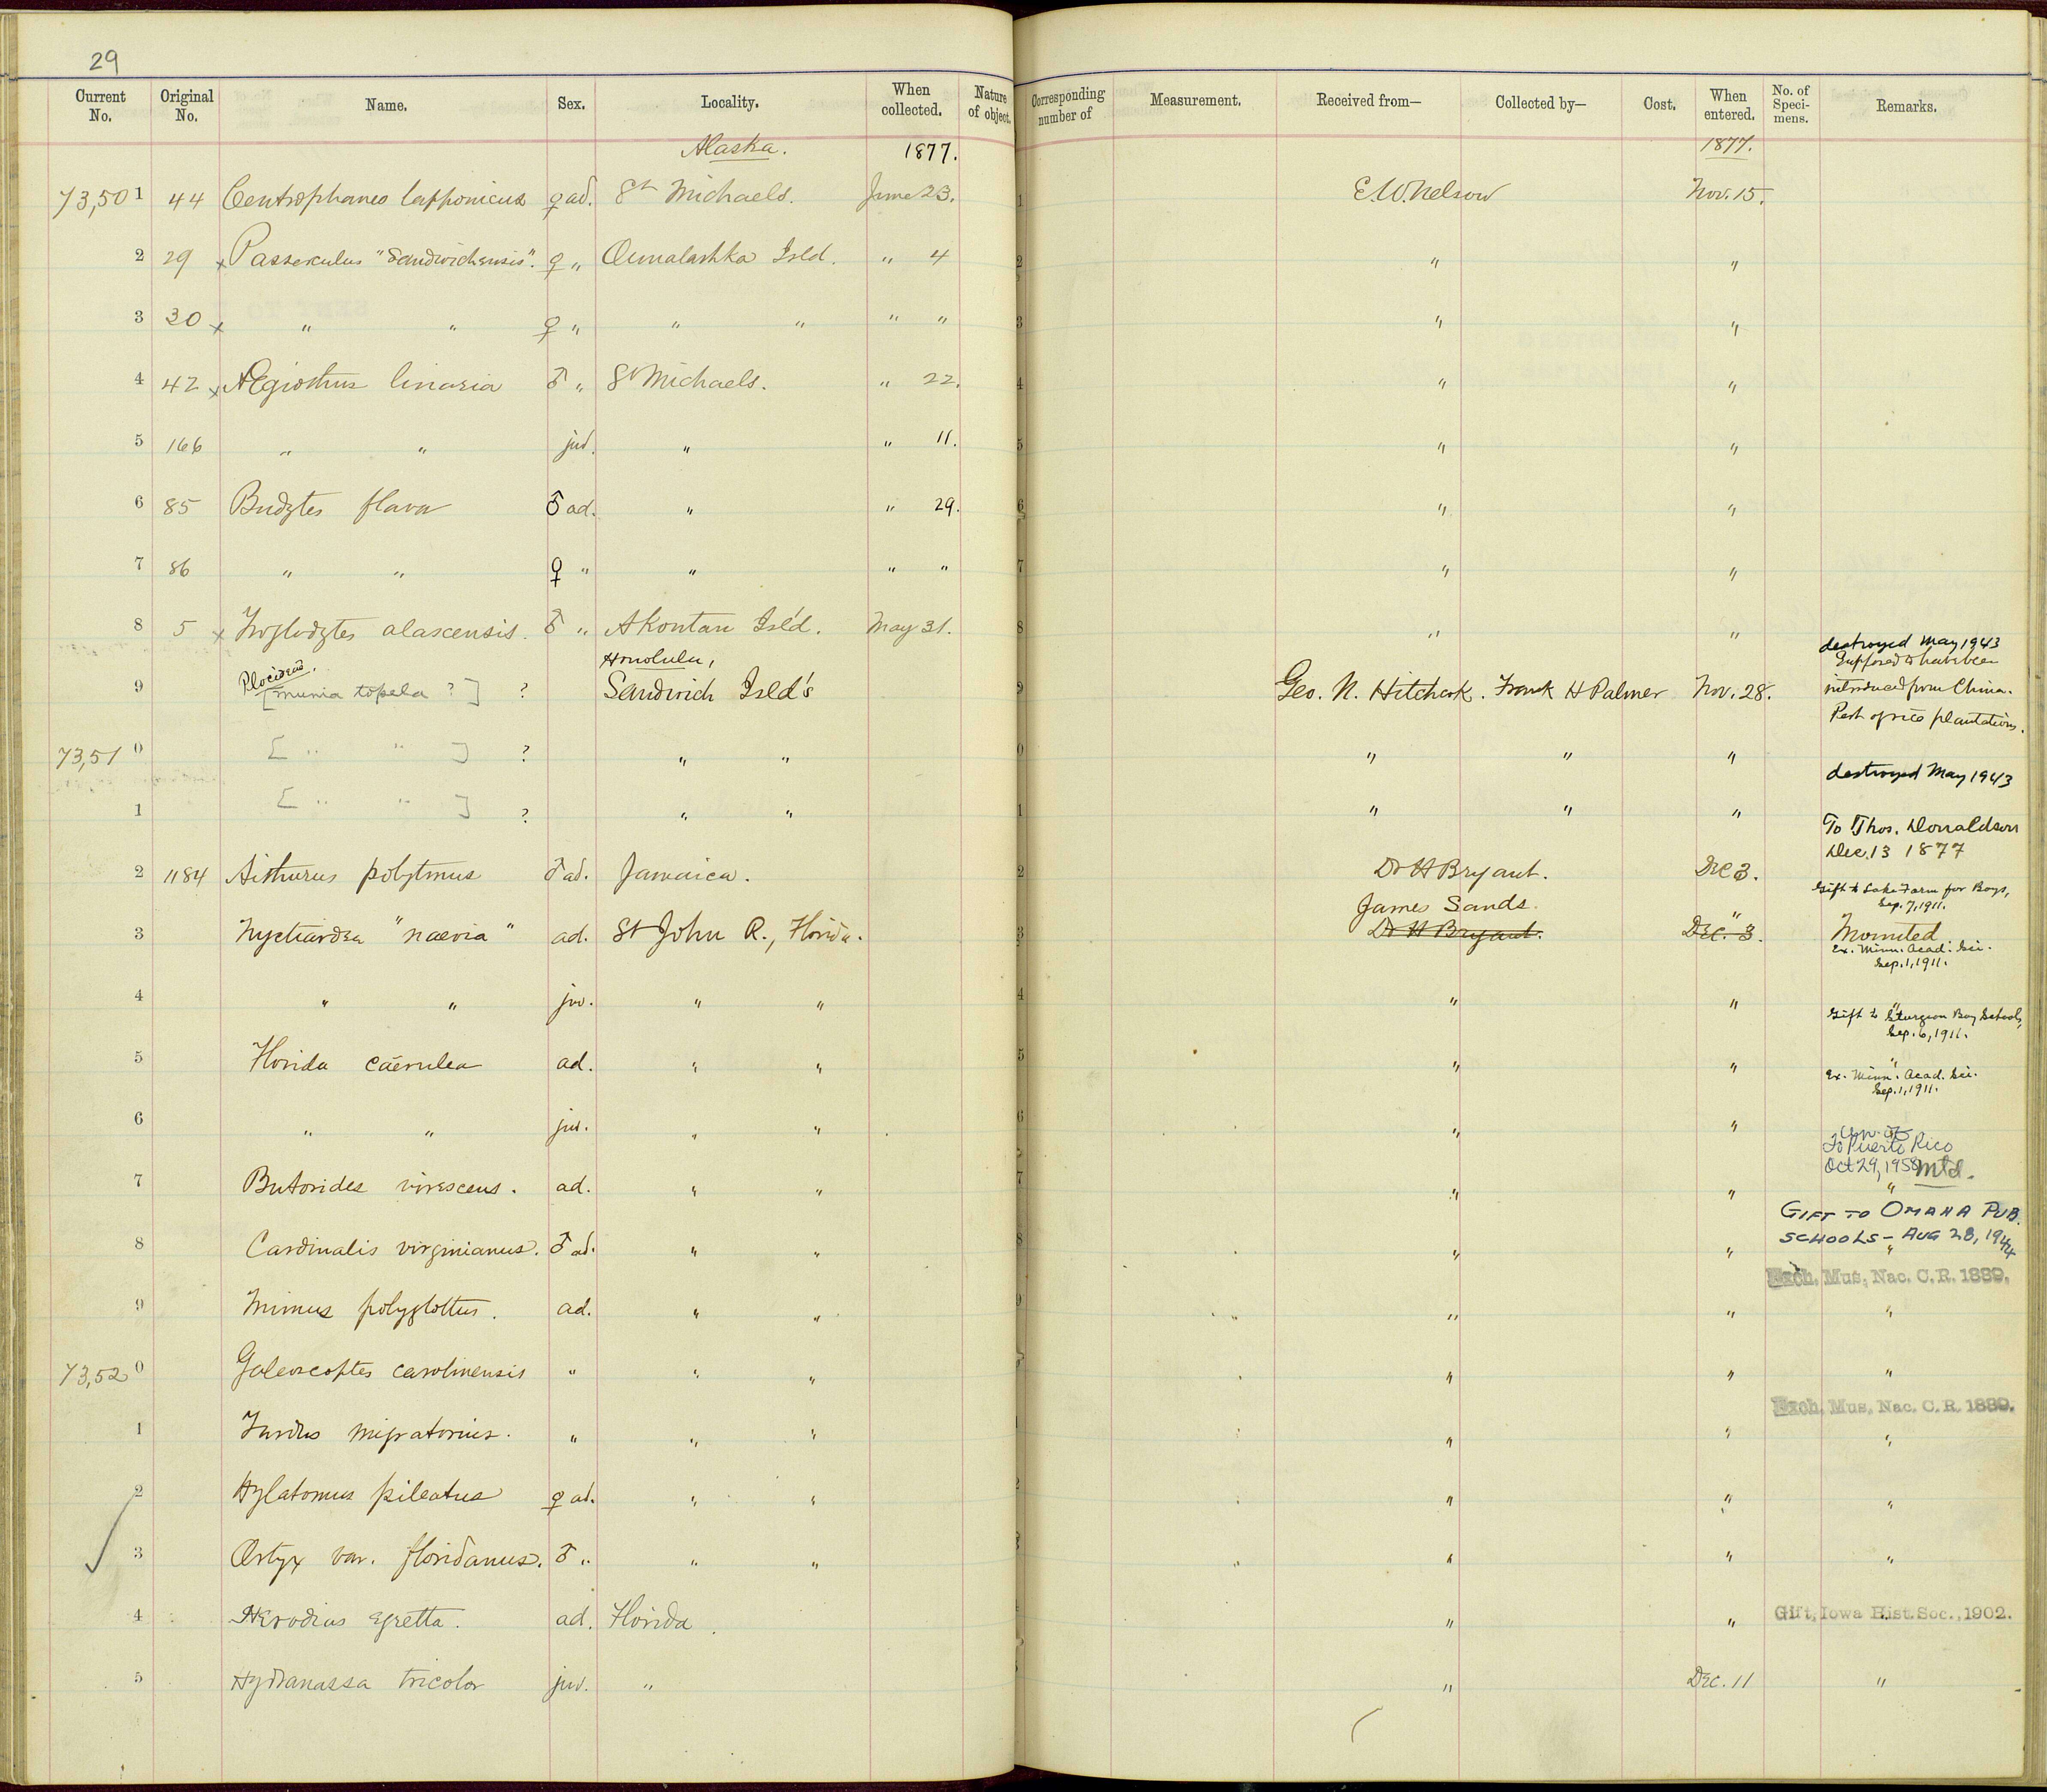 29
Current No. Original No. Name. Sex. Locality. When collected. Nature of object. Corresponding number of Measurement. Received from— Collected by— Cost. When entered. No. of Specimens. Remarks.
Alaska. 1877. 1877.
73,501 44 Centrophanes lapponicus ♀ ad. St Michaels. June 23. 1 E.W. Nelson Nov. 15.
2 29 x Passerculus "Sandwichensis". ♀ " Ounalashka Isld. " 4 2 " "
3 30 x " " ♀ " " " " " 3 " "
4 42 x Ægiothus linaria ♂ " St Michaels. " 22. 4 " "
5 166 " " jud. " " 11. 5 " "
6 85 Budytes flava ♂ ad. " " 29. 6 " "
7 86 " " ♀ " " " " 7 " "
8 5 x Troglodytes alascensis. ♂ " Akoutan Isl'd. May 31. 8 " "
destroyed May 1943
Honolulu, Supposed to have been
Ploceidae.
9 [munia topela ?] ? Sandwich Isld's 9 Geo. N. Hitchcock. Frank H Palmer Nov. 28. introduced from China.
Pest of rice plantations.
73,510 [ " " ] ? " " 0 " " "
destroyed May 1943
1 [ " " ] ? " " 1 " " "
To Thos. Donaldson
Dec. 13 1877
2 1184 Aithurus polytmus ♂ ad. Jamaica. 2 Dr H Bryant. Dec 3.
Gift to Lake Farm for Boys,
Sep. 7, 1911.
James Sands. "
3 Nyctiardea "naevia" ad. St John R., Florida. 3 Dr H Bryant. Dec. 3. Mounted
Ex. Minn. Acad. Sci.
Sep. 1, 1911.
4 " " juv. " " 4 " " "
Gift to Sturgeon Bay Schools,
Sep. 6, 1911.
5 Florida caerulea ad. " " 5 " " "
Ex. Minn. Acad. Sci.
Sep. 1, 1911.
6 " " juv. " " 6 " "
Univ. of
To Puerto Rico
Oct 29, 1958 Mtd.
7 Butorides virescens. ad. " " 7 " " "
GIFT TO OMAHA PUB.
SCHOOLS - AUG 28, 1944
8 Cardinalis virginianus. ♂ ad. " " 8 " " "
Exch. Mus. Nac. C.R. 1889.
9 Mimus polyglottus. ad. " " 9 " " "
73,520 Galeoscoptes carolinensis " " " " " "
Exch. Mus. Nac. C.R. 1889.
1 Turdus migratorius. " " " 1 " " "
2 Hylatomus pileatus ♀ ad. " " 2 " " "
3 Ortyx var. floridanus. ♂ " " " 3 " " "
4 Herodias egretta. ad. Florida. " " Gift, Iowa Hist. Soc., 1902.
5 Hydranassa tricolor juv. " " Dec. 11 "